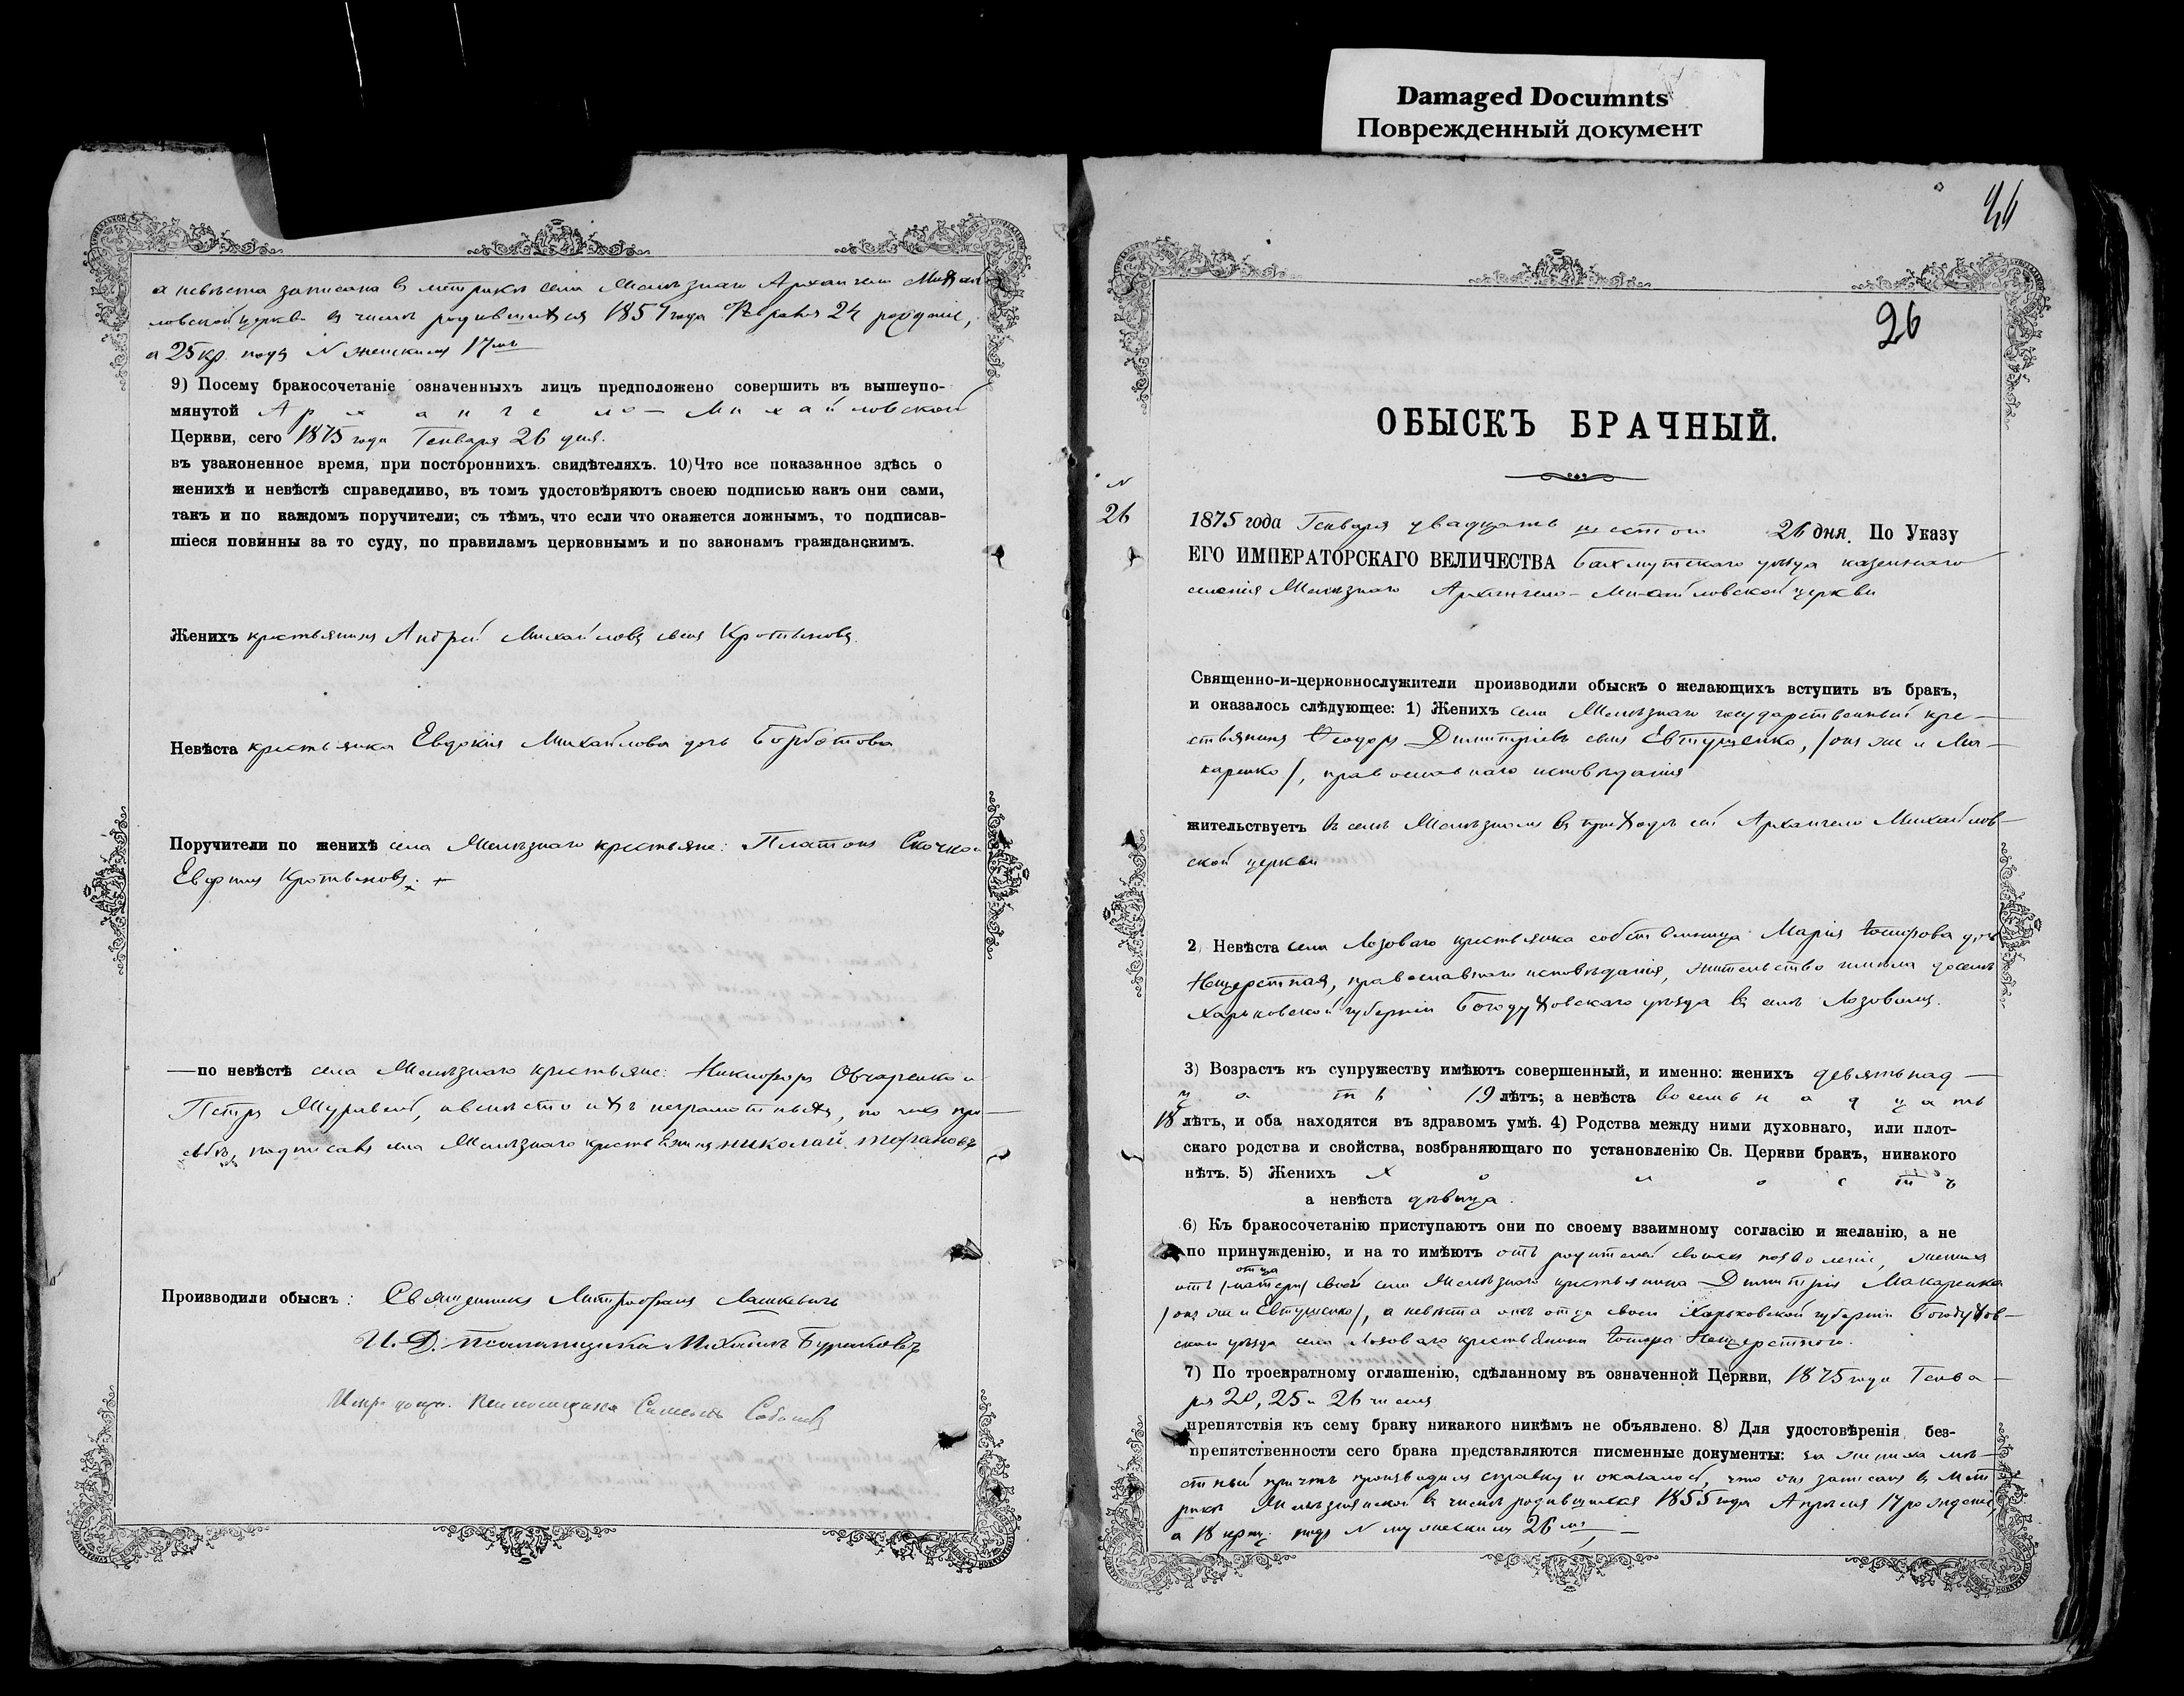 Damaged Documnts
Поврежденный документ
а невѣста записана в метрикѣ села Желѣзнаго Архангело Михай
ловской церкви въ числѣ родившихся 1857 года Февраля 24 рожденіе,
а 25 кр. подъ N женскимъ 17мъ
9) Посему бракосочетаніе означенныхъ лицъ предположено совершить въ вышеупо-
мянутой Архангело-Михайловской
Церкви, сего 1875 года Генваря 26 дня.
въ узаконенное время, при постороннихъ свидѣтеляхъ. 10) Что все показанное здѣсь о
женихѣ и невѣстѣ справедливо, въ томъ удостовѣряютъ своею подписью какъ они сами,
такъ и по каждомъ поручители; съ тѣмъ, что если что окажется ложнымъ, то подписав-
шіеся повинны за то суду, по правиламъ церковнымъ и по законамъ гражданскимъ.
Женихъ крестьянинъ Андрей Михайловъ сынъ Кротьяновъ.
Невѣста крестьянка Евдокія Михайлова дочь Борботова
Поручители по женихѣ села Желѣзнаго крестьяне: Платонъ Скочко и
Евфимъ Кротьяновъ.
— по невѣстѣ села Желѣзнаго крестьяне: Никифоръ Овчаренко и
Петръ Журавель, а вмѣсто ихъ неграмотныхъ, по ихъ про—
сьбѣ, подписавъ села Желѣзнаго крестьянинъ николай
Производили обыскъ: Священникъ Митрофанъ Лашкевичъ
И. Д. псаломщика Михаилъ Бурлаковъ
псаломщика Симеонъ
26
26
ОБЫСКЪ БРАЧНЫЙ.
N
26
1875 года Генваря двадцать шестого 26 дня. По Указу
ЕГО ИМПЕРАТОРСКАГО ВЕЛИЧЕСТВА Бахмутскаго уѣзда казеннаго
селенія Желѣзнаго Архангело-Михайловской церкви
Священно-и-церковнослужители производили обыскъ о желающихъ вступить въ бракъ,
и оказалось слѣдующее: 1) Женихъ села Желѣзнаго государственный кре—
стьянинъ Ѳеодоръ Димитріевъ сынъ Евтушенко, /онъ же и Ма—
каренко/, православнаго исповѣданія
жительствуетъ въ селѣ Желѣзномъ въ приходѣ сей Архангело Михайлов—
ской церкви
2) Невѣста села Лозоваго крестьянка собственница Марія Іосифова дочь
Нещеретная, православнаго исповѣданія, жительство имѣла доселѣ
Харьковской губерніи Богодуховскаго уѣзда въ селѣ Лозовомъ.
3) Возрастъ къ супружеству имѣютъ совершенный, и именно: женихъ девятьнад—
цать 19 лѣтъ; а невѣста восемьнадцать
18 лѣтъ, и оба находятся въ здравомъ умѣ. 4) Родства между ними духовнаго, или плот-
скаго родства и свойства, возбраняющаго по установленію Св. Церкви бракъ, никакого
нѣтъ. 5) Женихъ холостъ
а невѣста дѣвица.
6) Къ бракосочетанію приступаютъ они по своему взаимному согласію и желанію, а не
по принужденію, и на то имѣютъ отъ родителей своихъ позволеніе, женихъ
отца
отъ /матери/ своей села Желѣзнаго крестьянина Димитрія Макаренка
/онъ же и Евтушенко/, а невѣста отъ отца своего Харьковской губерніи Богодухов—
скаго уѣзда села Лозоваго крестьянина Іосифа Нещеретнаго.
7) По троекратному оглашенію, сдѣланному въ означенной Церкви, 1875 года Генва—
ря 20, 25 и 26 числа
препятствія къ сему браку никакого никѣмъ не объявлено. 8) Для удостовѣренія без-
препятственности сего брака представляются писменные документы: за жениха мѣ—
стный причтъ производилъ справку и оказалось, что онъ записанъ въ Мет
рикѣ Желѣзнянской въ числѣ родившихся 1855 года Апрѣля 17 рожденіе,
а 18 крещ. подъ N мужескимъ 26мъ, —